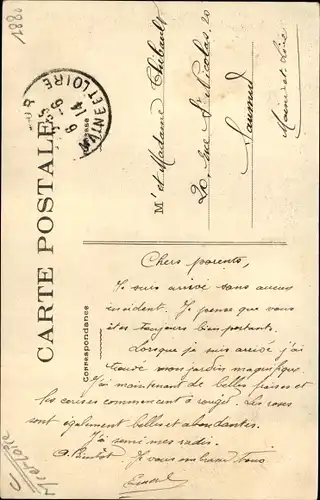 0881
CARTE POSTALE
Correspondance
Adresse
ET LOIRE
6-6
14
Mr et Madame Thibault
20, Rue St Nicolas, 20
Saumur
Maine et Loire
Chers parents,
Je suis arrivé sans aucun
incident. Je pense que vous
êtes toujours bien portants.
Lorsque je suis arrivé j'ai
trouvé mon jardin magnifique.
J'ai maintenant de belles fraises et
les cerises commencent à rougir. Les roses
sont également belles et abondantes.
J'ai semé mes radis.
A bientôt. Je vous embrasse tous